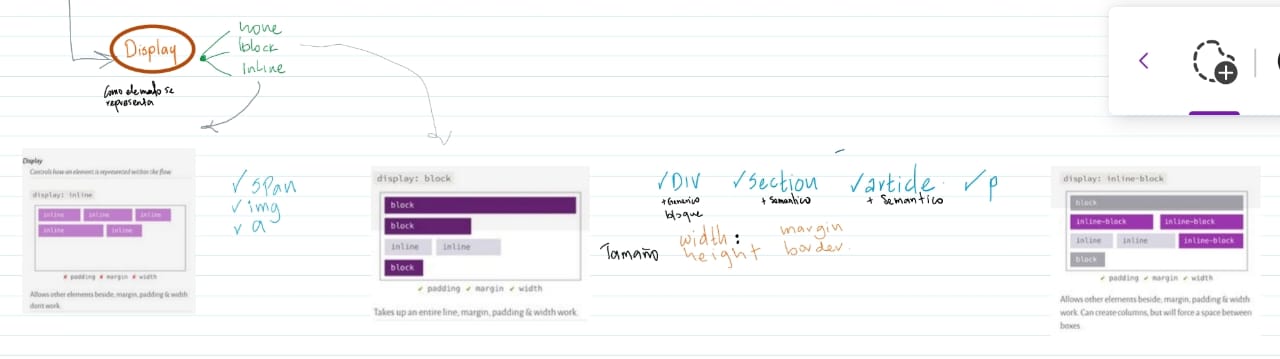 none
Display
block
inline
Como elemento se
representa
Display
Controls how an element is represented within the flow
display: inline
inline inline inline
inline inline
✗ padding ✗ margin ✗ width
Allows other elements beside, margin, padding & width
dont work.
✓ span
✓ img
✓ a
display: block
block
block
inline inline
block
✓ padding ✓ margin ✓ width
Takes up an entire line, margin, padding & width work.
✓ DIV ✓ section ✓ article. ✓ p
+ Generico + Semantico + Semantico
bloque
Tamaño width: margin
height border.
display: inline-block
block
inline-block inline-block
inline inline inline-block
block
✓ padding ✓ margin ✓ width
Allows other elements beside, margin, padding & width
work. Can create columns, but will force a space between
boxes.